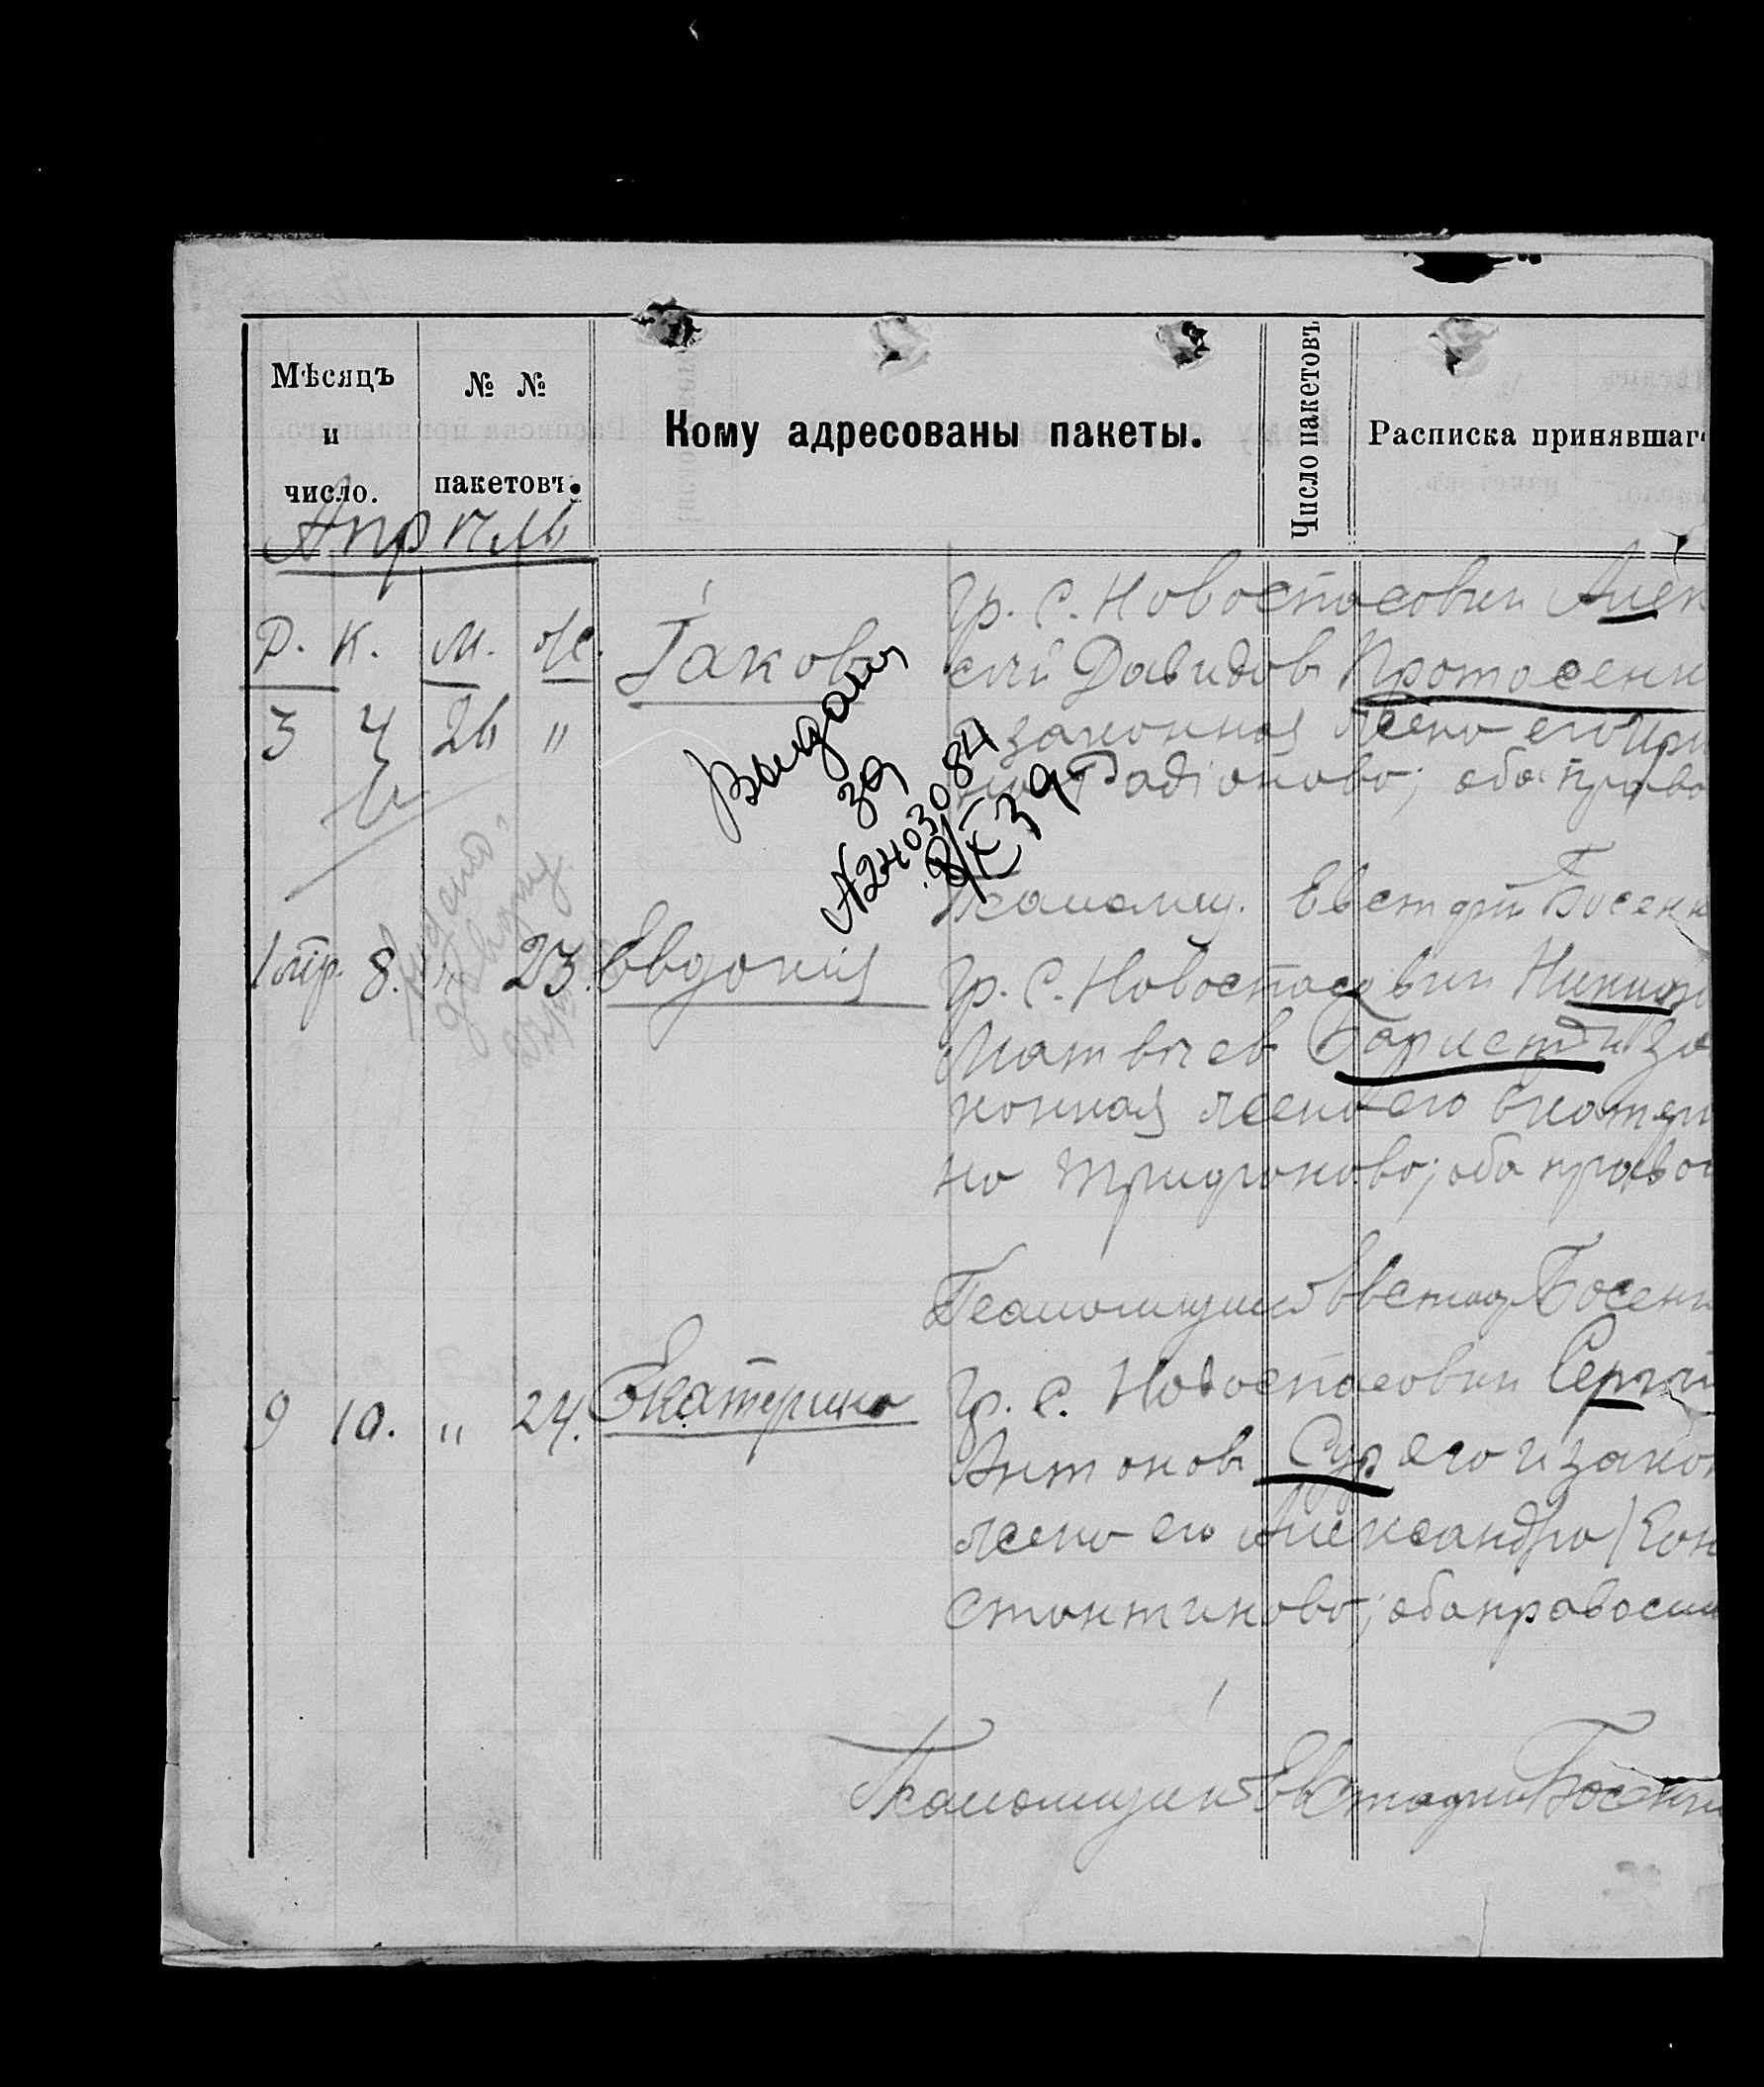 Мѣсяцъ
и
число.
№ №
пакетовъ.
Кому адресованы пакеты.
Число пакетовъ
Расписка принявшаг
Апрѣль
Р. К. М. Ж.
3 4 26 "
Іаковъ
Гр. С. Новоспасовки Алек
сій Давидовъ Протасенк
законная жена его Ири
на Радіонова; оба право
Выдано
за
№2403084
Псаломщ. Евстафій Босенк
8. " 23. Евдокія
Гр. С. Новоспасовки Никиф
Матвѣевъ и за
конная жена его Екатери
на Трифонова; оба правос
Псаломщикъ Евстаф Босенк
9 10. " 24. Екатерина
Гр. С. Новоспасовки Сергѣй
Антоновъ и закон
жена его Александра Кон
стантинова; оба правосл
Псаломщикъ Евстафій Босенк